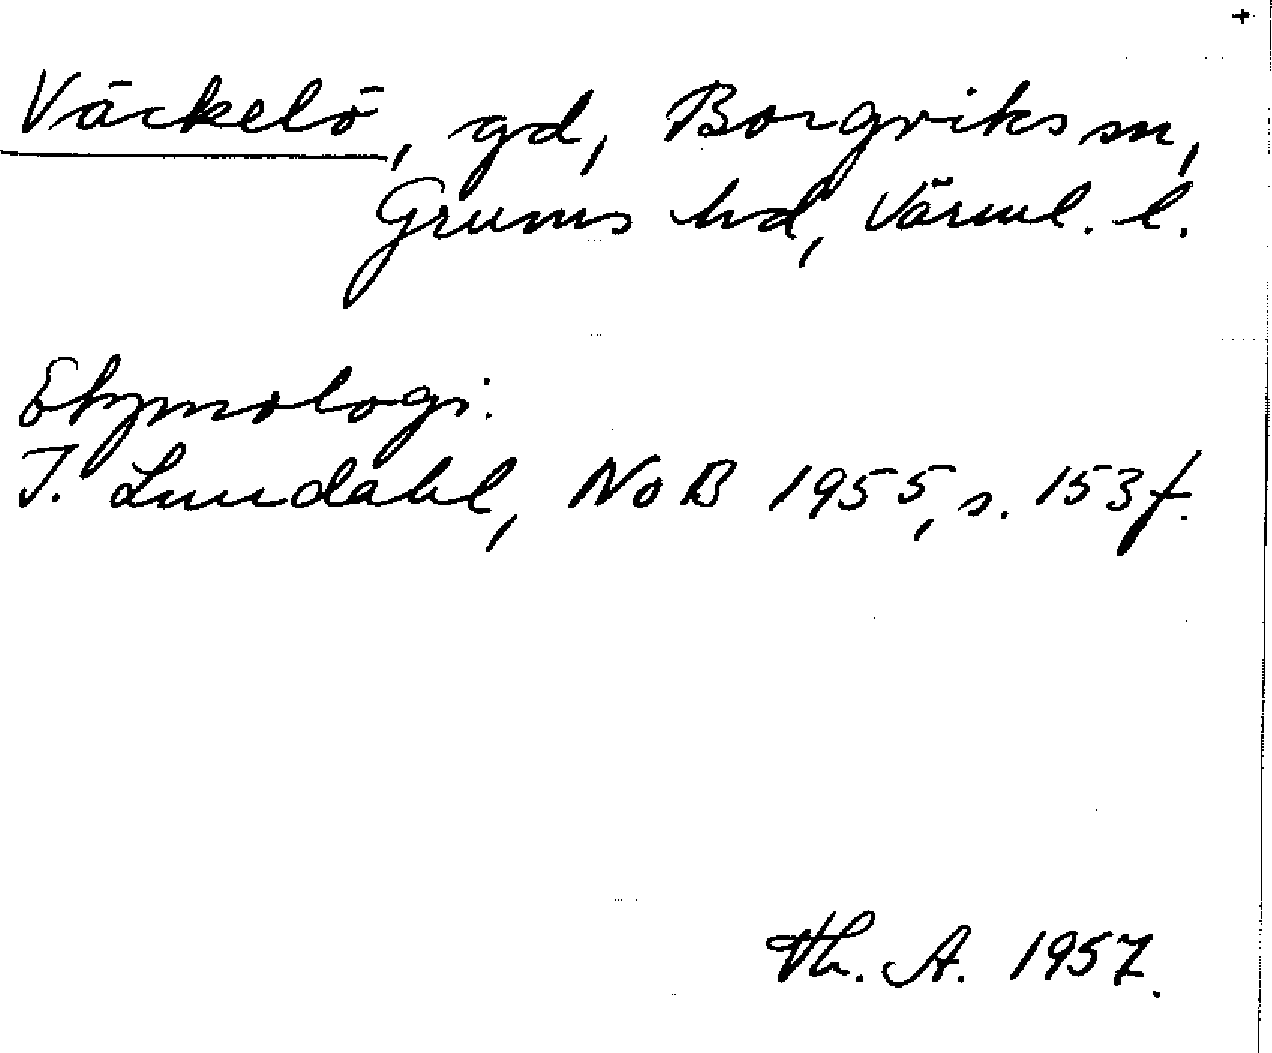 +
Väckelö, gd, Borgviks sn,
Grums hd, Värml. l.
Etymologi:
I. Lundahl, NoB 1955, s. 153 f.
Th. A. 1957.